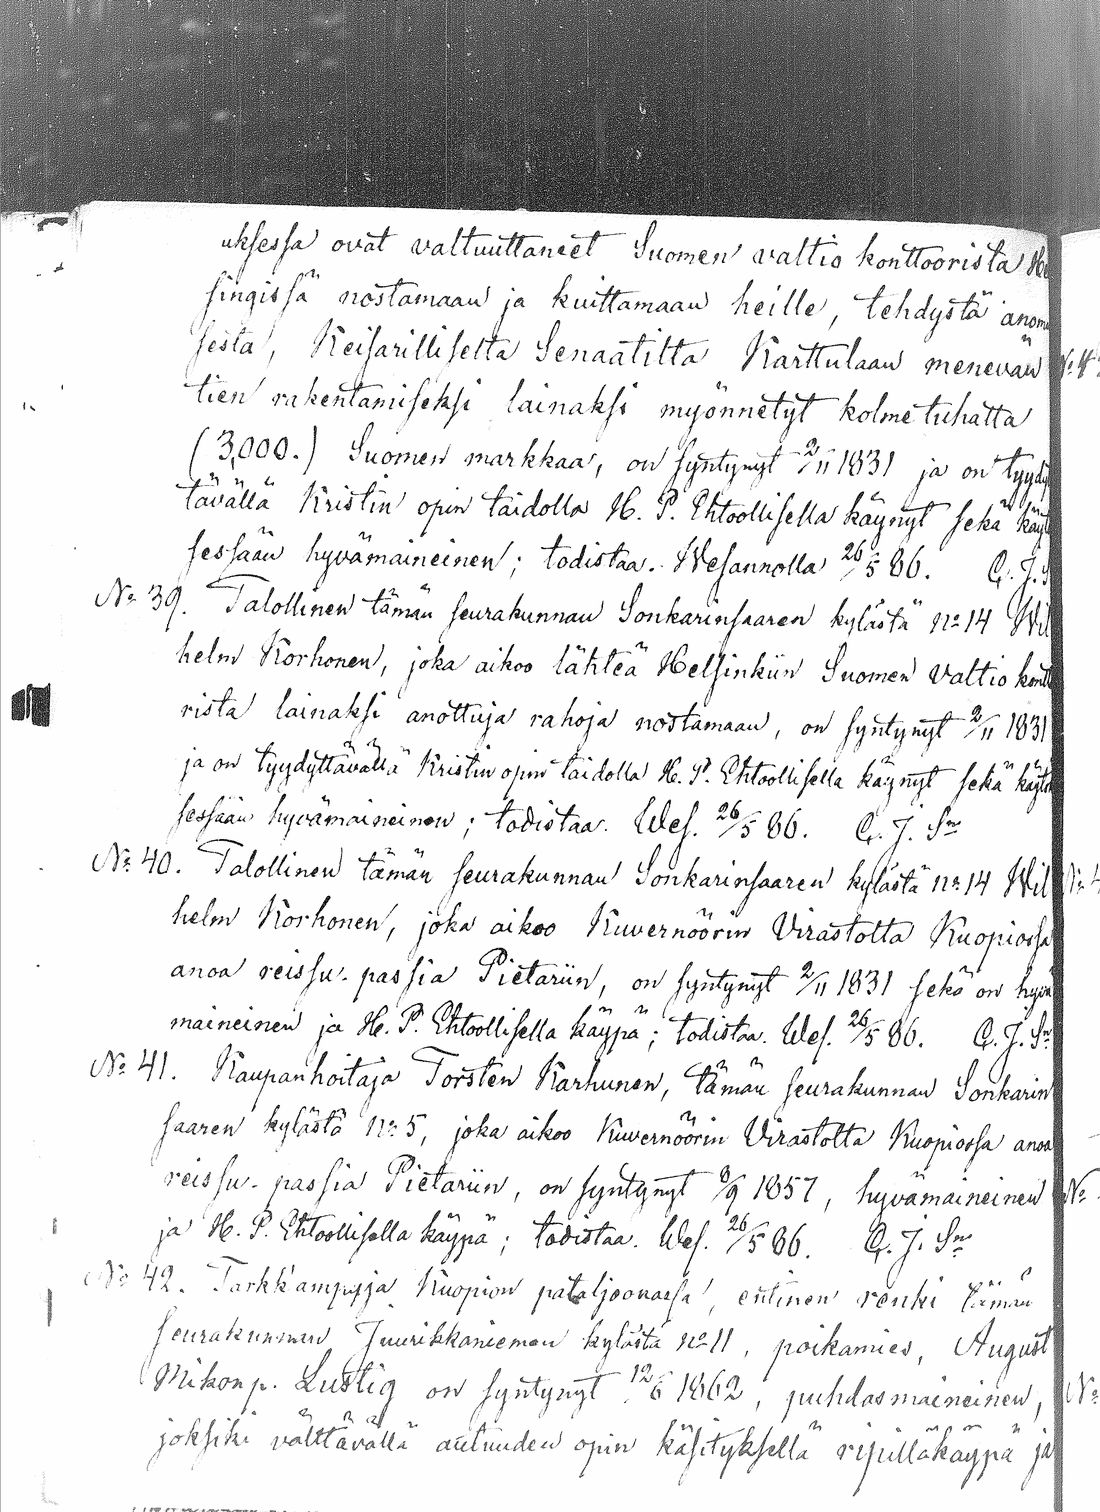 uksessa ovat valtuuttaneet Suomen valtio konttoorista He
singissä nostamaan ja kuittamaan heille, tehdystä anom
sesta, Keisarilliselta Senaatilta Karttulaan menevän
tien rakentamiseksi lainaksi myönnetyt kolmetuhatta
(3,000.) Suomen markkaa, on syntynyt 2/11 1831 ja on tyydy
tävällä Kristin opin taidolla H. P. Ehtoollisella käynyt sekä käyt
sessään hyvämaineinen; todistaa. Wesannolla 26/5 86. C. J. S
No 39. Talollinen tämän seurakunnan Sonkarinsaaren kylästä no 14 Wil
helm Korhonen, joka aikoo lähteä Helsinkiin Suomen Valtio kontt
rista lainaksi anottuja rahoja nostamaan, on syntynyt 2/11 1831
ja on tyydyttävällä Kristin opin taidolla H. P. Ehtoollisella käynyt sekä käytök
sessään hyvämaineinen; todistaa. Wes. 26/5 86. C. J. Sm
No 40. Talollinen tämän seurakunnan Sonkarinsaaren kylästä no 14 Wil
helm Korhonen, joka aikoo Kuvernöörin Virastolta Kuopiossa
anoa reissu-passia Pietariin, on syntynyt 2/11 1831 sekä on hyvä
maineinen ja H. P. Ehtoollisella käypä; todistaa. Wes. 26/5 86. C. J. Sm
No 41. Kaupanhoitaja Torsten Karhunen, tämän seurakunnan Sonkarin
saaren kylästä no 5, joka aikoo Kuvernöörin Virastolta Kuopiossa anoa
reissu-passia Pietariin, on syntynyt 8/9 1857, hyvämaineinen
ja H. P. Ehtoollisella käypä; todistaa. Wes. 26/5 86. C. J. Sm
No 42. Tarkk'ampuja Kuopion pataljoonassa, entinen renki tämän
seurakunnan Juurikkaniemen kylästä no 11, poikamies, August
Mikonp. Lustig on syntynyt 12/6 1862, puhdasmaineinen,
joksiki välttävällä autuuden opin käsityksellä ripilläkäypä ja